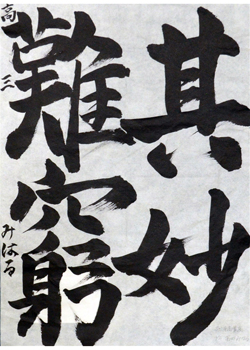 其妙
難窮
高三 みはる